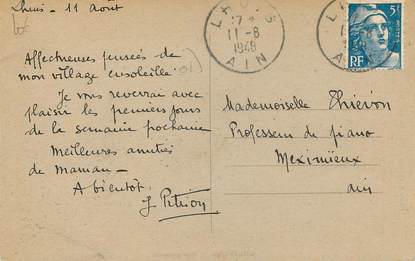 Lhuis - 11 Août
Affectueuses pensées de
mon village ensoleillé
Je vous reverrai avec
plaisir les premiers jours
de la semaine prochaine
Meilleures amitiés
de Maman -
A bientôt.
LHUIS
11-8
1948
AIN
5F
RF
Mademoiselle Thiévon
Professeur de piano
Meximieux
Ain